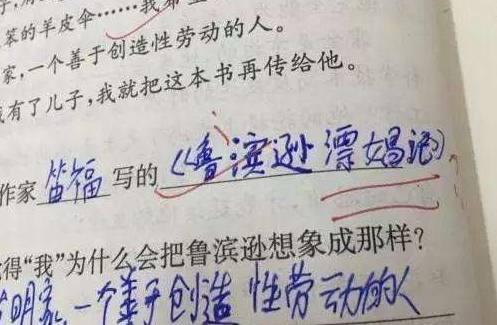 笨的羊皮伞……我希
家，一个善于创造性劳动的人。
有了儿子，我就把这本书再传给他。
作家 笛福 写的 《鲁滨逊漂娼记》
得“我”为什么会把鲁滨逊想象成那样？
明家，一个善于创造性劳动的人